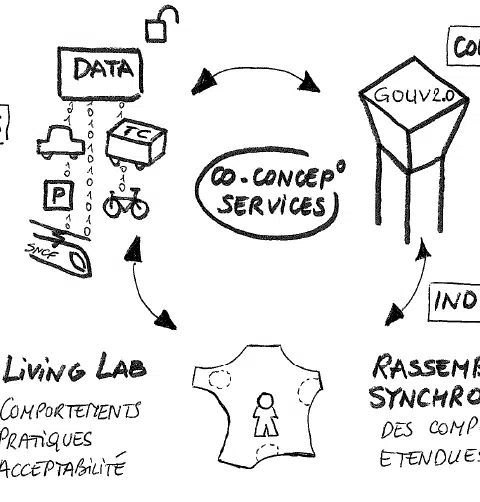 DATA
TC
P
SNCF
GOUV2.0
CO-CONCEP°
SERVICES
LIVING LAB
COMPORTEMENTS
PRATIQUES
ACCEPTABILITÉ
RASSEMB
SYNCHRO
DES COMP
ETENDUES
IND